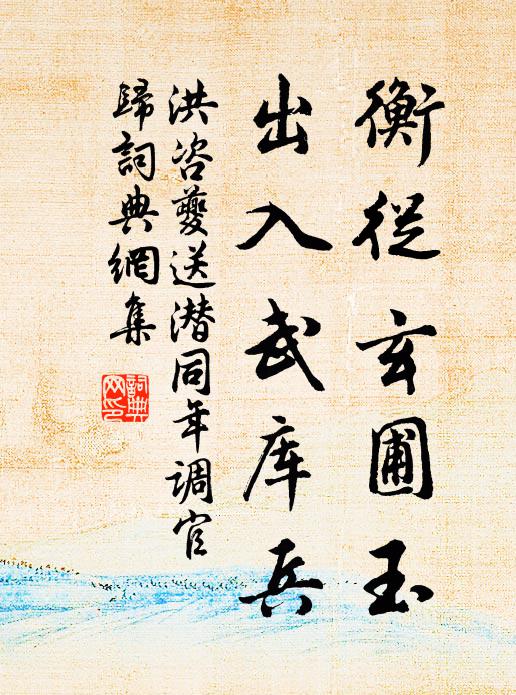 衡從玄圃玉
出入武库兵
洪咨夔送潜同年调官
歸詞典網集
詞典
网印